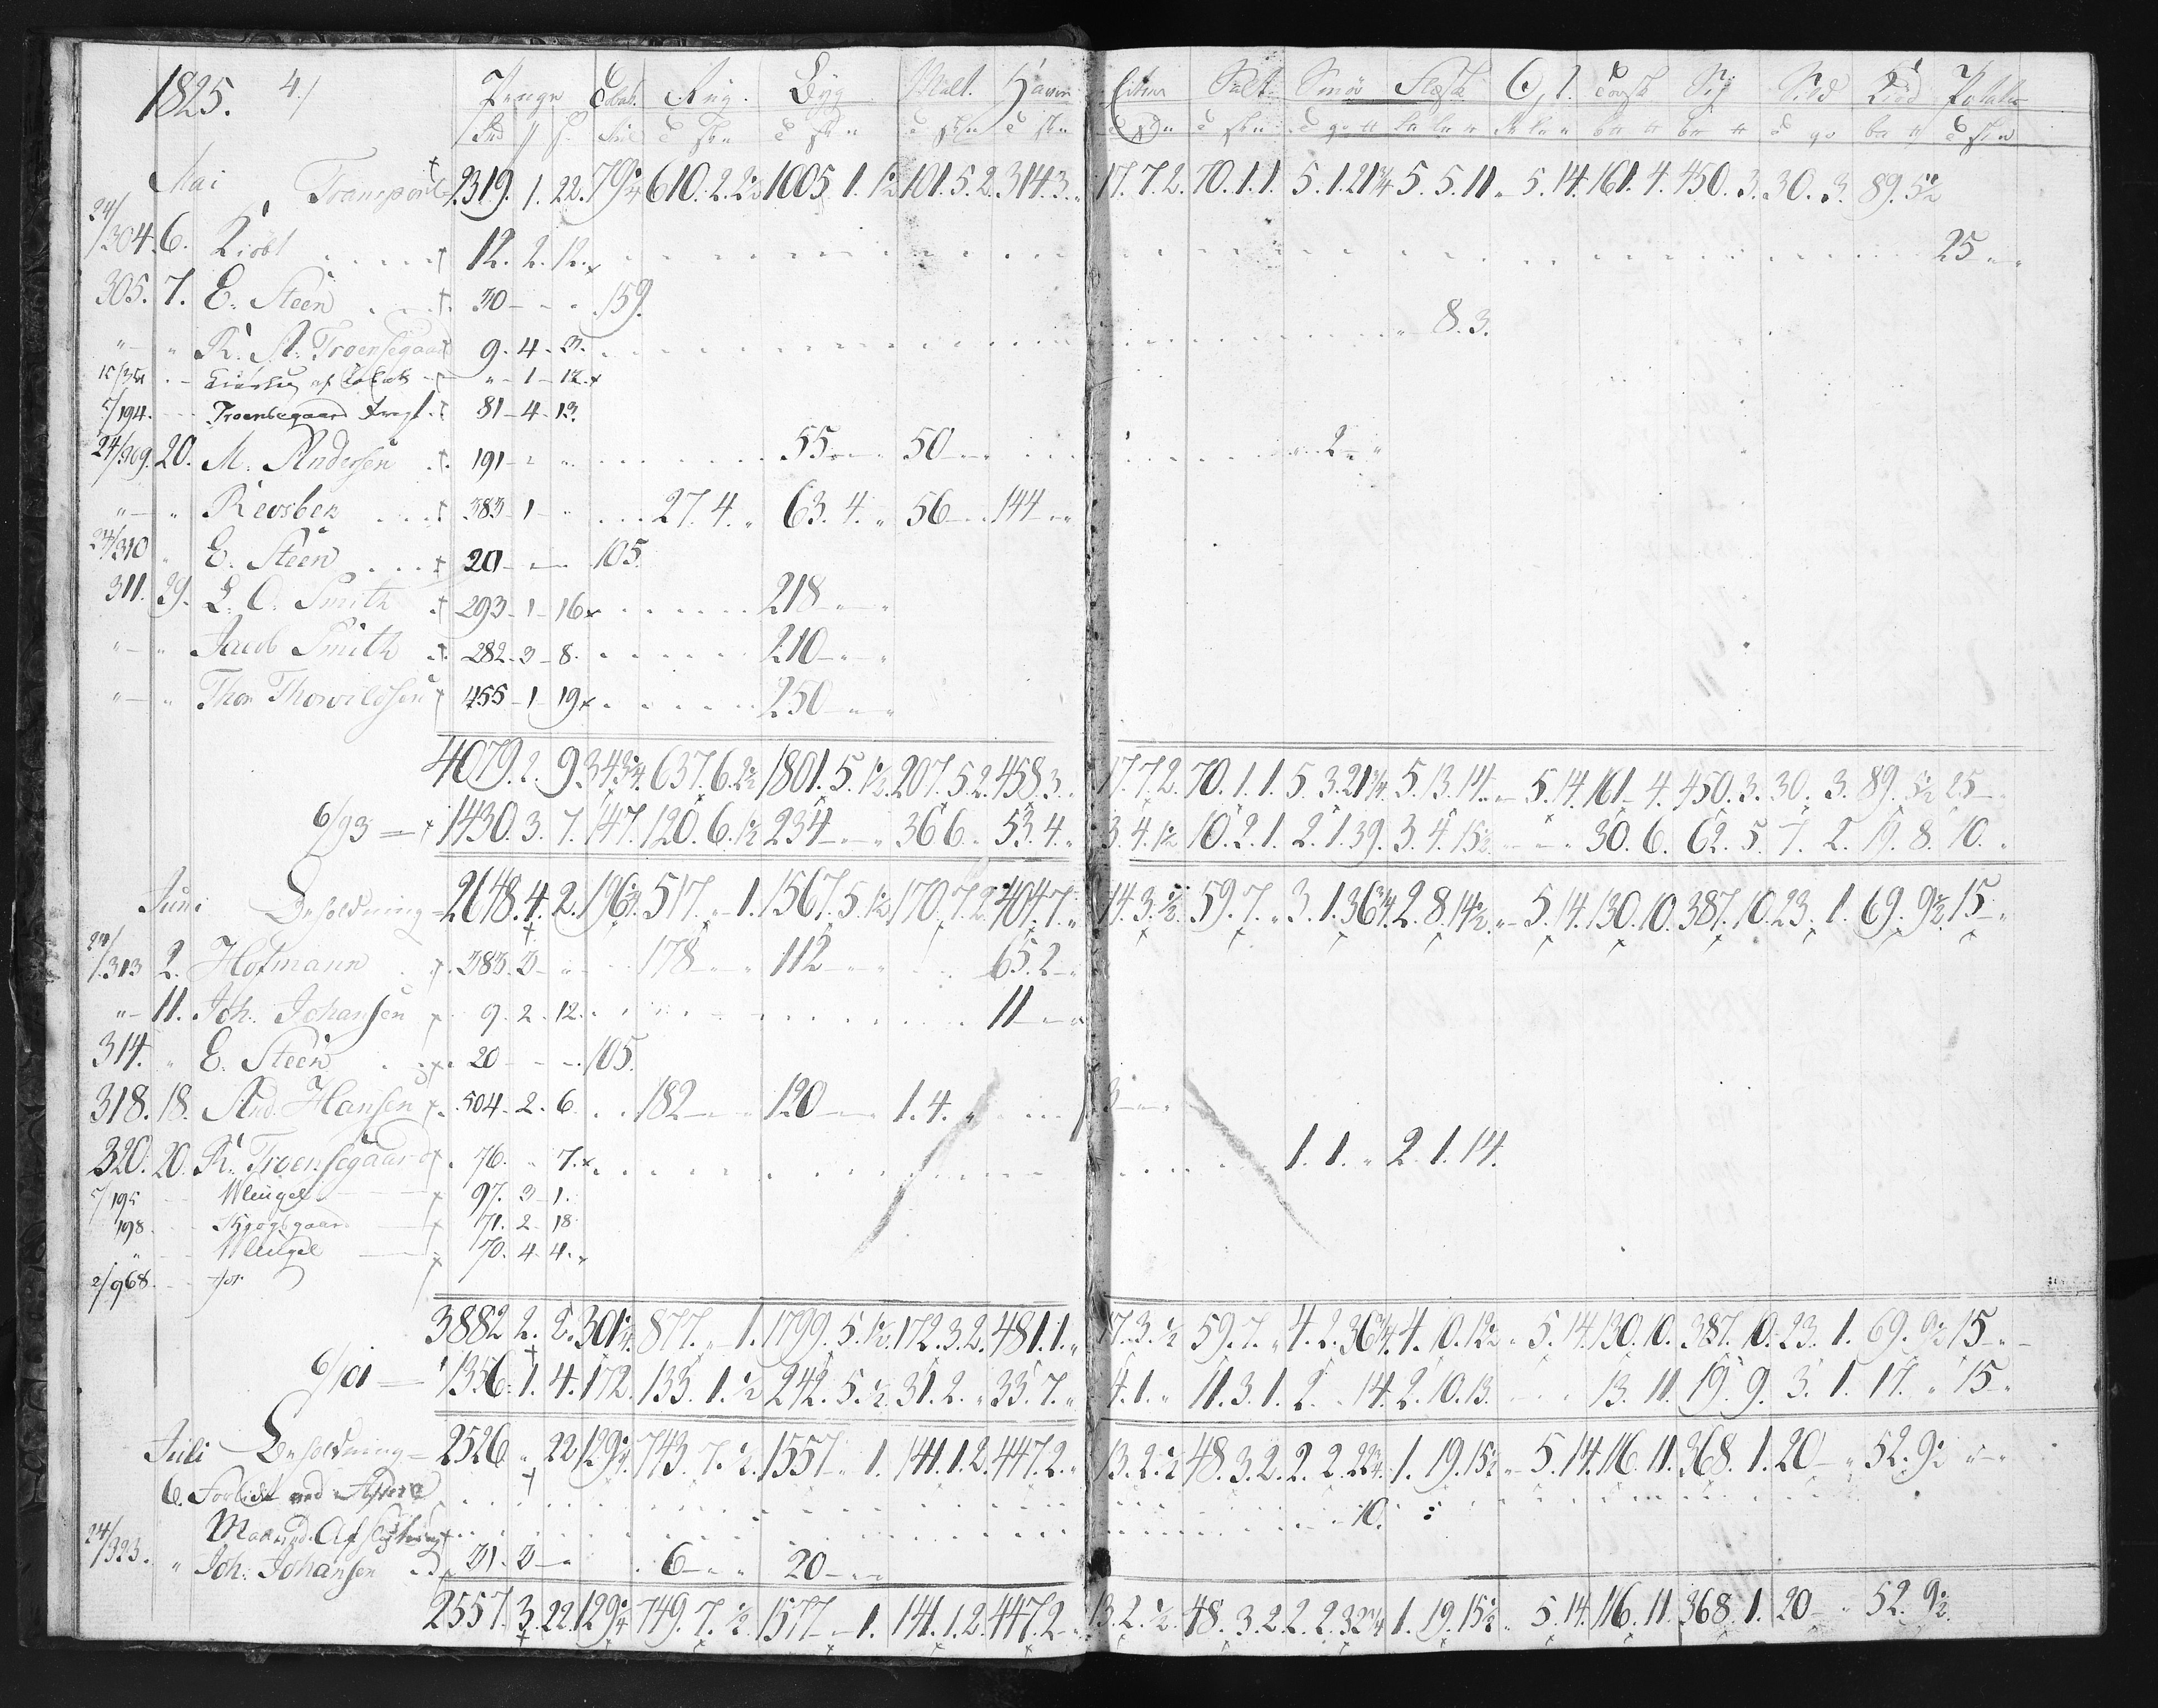 1825. 4/ Penge Tobak. Rug. Byg Malt. Havre Erter Salt Smör Flesk Torsk Sej Sild Kiød Potater
Mai Transport 2319. 1. 22. 79 3/4 610. 2. 2 1/2 1005. 1. 1 1/2 101. 5. 2. 314. 3. „ 17. 7. 2. 70. 1. 1. 5. 1. 21 3/4 5. 5. 11. „ 5. 14. 161. 4. 450. 3. 30. 3. 89. 5 1/2
24/304. 6. Kiöbt 12. 2. 12. 25 „ „
305. 7. E. Steen 30 – – 159.
„ – „ R. A. Troensegaard 9. 4. 3. 8. 3.
15/ „ – af Tobak „ – 1 – 12.
5/194. Troensegaard Fragt 81 – 4 – 13.
24/309. 20. M. Andersen 191 – „ 55 – „ 50 – „ 2 – „
„ – „ Revsbek 383 – 1 – „ 27. 4. „ 63. 4. „ 56 – „ 144 – „
24/310 „ E. Steen 20 – „ 105.
311. 29. L. O. Smith 293 – 1 – 16 218 – „
„ – „ Jacob Smith 282 – 3 – 8. 210 – „
„ – „ Thor Thorvildsen 455 – 1 – 19 250 – „
4079. 2. 9. 343 3/4. 637. 6. 2 1/2 1801. 5. 1 1/2. 207. 5. 2. 458. 3. „ 17. 7. 2. 70. 1. 1. 5. 3. 21 3/4. 5. 13. 14. „ 5. 14. 161 – 4. 450. 3. 30. 3. 89. 5 1/2 25 –
6/93 = 1430. 3. 7. 147. 120. 6. 1 1/2 234 – „ 36 6. „ 53. 4. „ 3. 4. 1 1/2 10. 2. 1. 2. 1. 39. 3. 4. 15 1/2. „ 30. 6. 62. 5. 7. 2. 19. 8. 10. „
Juni Beholdning 2648. 4. 2. 196 3/4. 517. „ 1. 1567. 5. 1 1/2 170. 7. 2. 404. 7. „ 14. 3. 1/2. 59. 7. „ 3. 1. 36 3/4. 2. 8. 14 1/2. „ 5. 14. 130. 10. 387. 10. 23. 1. 69. 9 1/2. 15. „
24/313 2. Hofmann 383. 3 – „ 178 – „ 112 – „ 65. 2 – „
„ – 11. Joh. Johansen 9. 2. 12. 11 – „
314. „ E. Steen 20 – – 105.
318. 18. And. Hansen 504. 2. 6. 182 – „ 120 – „ 1. 4. „ 3 – „
320. 20. R. Troensegaard 76. „ 7. 1. 1. „ 2. 1. 14.
5/195 Wleügel 97. 3 – 1.
198. 71. 2 – 18.
„ Wleügel 70. 4. 4.
2/968.
3882 2. 2. 301 3/4. 877. „ 1. 1799. 5. 1 1/2. 172. 3. 2. 481. 1. „ 17. 3. 1/2 59. 7. „ 4. 2. 36 3/4. 4. 10. 12 1/2 „ 5. 14. 130. 10. 387. 10. 23. 1. 69. 9 1/2 15 – „
6/101 = 1356. 1. 4. 172. 133. 1. 1/2 242. 5. 1/2. 31. 2. „ 33. 7. „ 4. 1. „ 11. 3. 1. 2. „ 14. 2. 10. 13. 13. 11. 19. 9. 3. 1. 17. „ 15 „
Juli Beholdning = 2526 „ 22 129 3/4. 743. 7. 1/2. 1557 „ 1. 141. 1. 2. 447. 2. „ 13. 2. 1/2 48. 3. 2. 2. 2. 22 3/4. 1. 19. 15 1/2 „ 5. 14. 116. 11. 368. 1. 20 – „ 52. 9 1/2 „ – „
6. Forliist ved 10.
24/323. „ Joh. Johansen 31. 3 – „ 6 – „ 20 – „
2557. 3. 22. 129 3/4 749. 7. 1/2. 1577 – 1. 141. 1. 2. 447. 2 – 13. 2. 1/2. 48. 3. 2. 2. 2. 32 3/4 1. 19. 15 1/2. „ 5. 14. 116. 11. 368. 1. 20 – „ 52. 9 1/2.